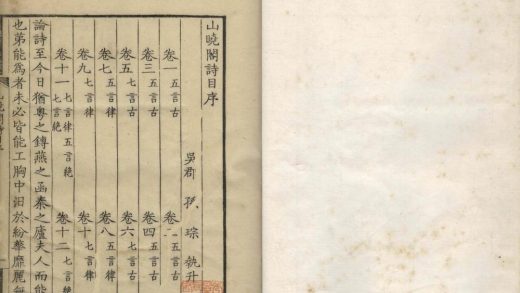 山曉閣詩目序
吳郡 孫琮 執升
卷一 五言古 卷二 五言古
卷三 五言古 卷四 五言古
卷五 七言古 卷六 七言古
卷七 五言律 卷八 五言律
卷九 七言律 卷十 七言律
卷十一 七言律五言絶七言絶 卷十二 七言絶
論詩至今日猶粵之鎛燕之函秦之廬夫人而能
也第能為者未必皆能工胸中汩於紛華靡麗無